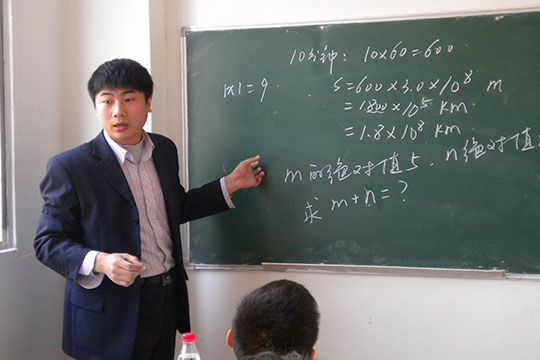 10分钟: 10×60=600
|x|=9
S=600×3.0×10⁸ m
=1800×10⁵ km
=1.8×10⁸ km
m的绝对值5. n绝对值
求 m+n=?